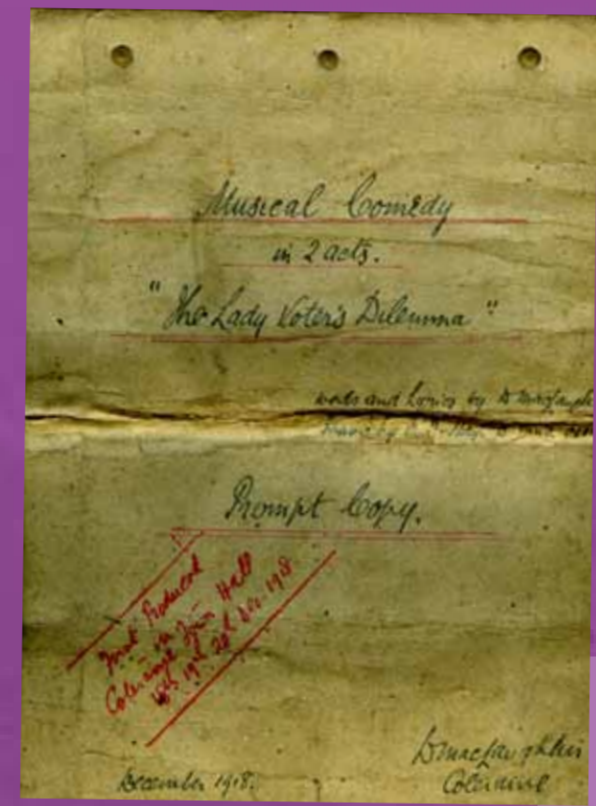 Musical Comedy
in 2 acts.
"The Lady Voter's Dilemma"
words and Lyrics by D MacLaughlin
Music by
Prompt Copy.
First Produced
in Town Hall
Coleraine
18th 19th 20th Dec. 1918
December 1918.
D MacLaughlin
Coleraine